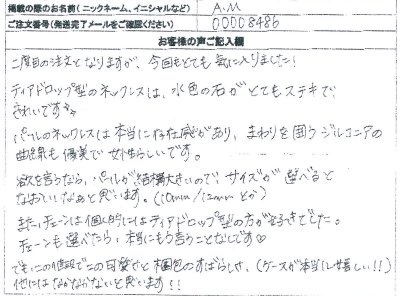 掲載の際のお名前(ニックネーム、イニシャルなど) A.M
ご注文番号(発送完了メールをご確認ください) 00008486
お客様の声ご記入欄
二度目の注文となりますが、今回もとても気に入りました!
ティアドロップ型のネックレスは、水色の石がとてもステキで
きれいです
パールのネックレスは本当に存在感があり、まわりを囲うジルコニアの
曲線も優美で女性らしいです。
欲を言うなら、パールが結構大きいので、サイズが選べると
なおいいなぁと思います。(10mm/12mmとか)
また、チェーンは個人的にはティアドロップ型の方が好きでした。
チェーンも選べたら、本当にもう言うことなしです♡
でも、この値段でこの可愛さと梱包のすばらしさ、(ケースが本当に嬉しい!!)
他にはなかなかないと思います!!